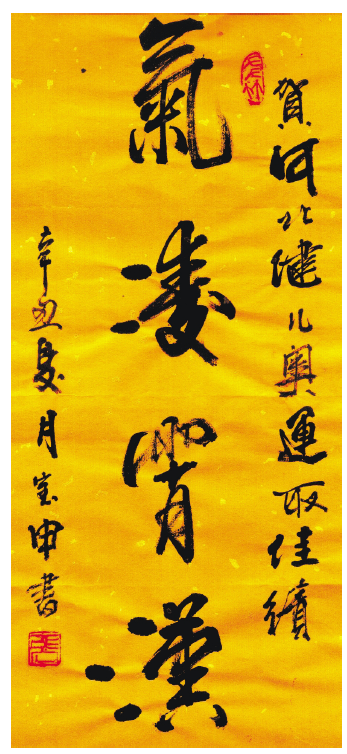 賀河北健儿奧運取佳績
氣凌霄漢
辛丑夏月宝申書